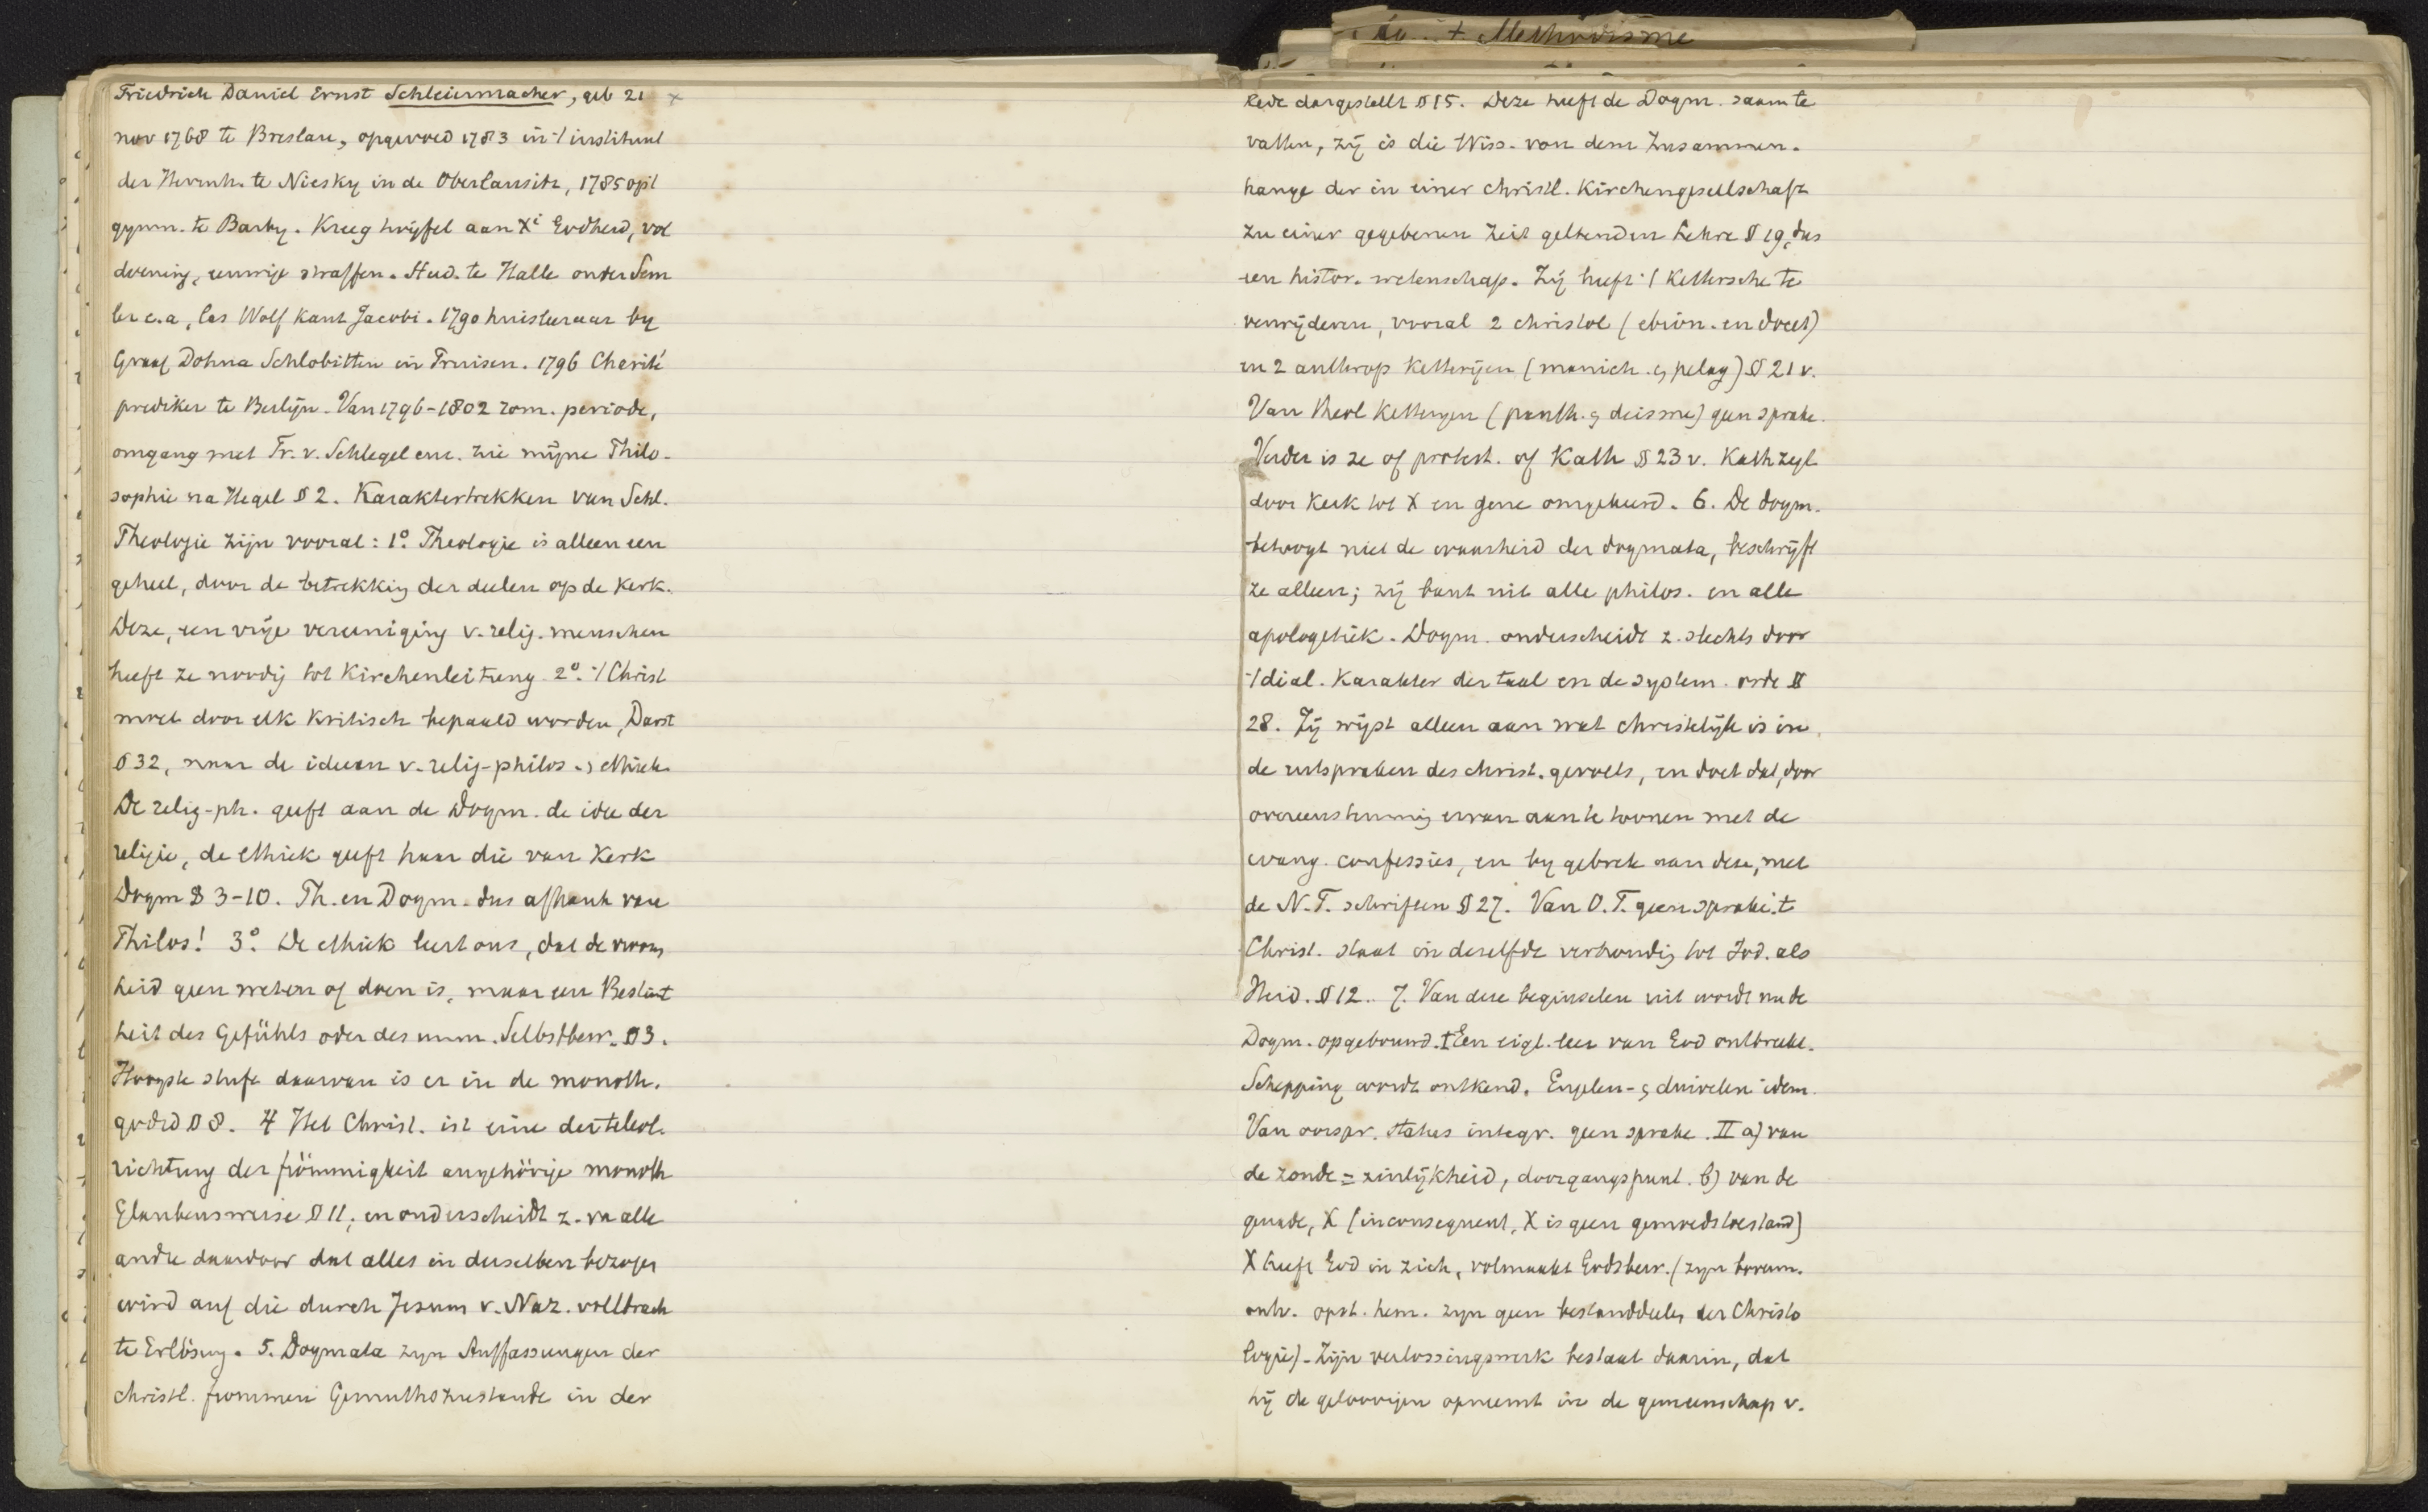 + Methodisme
Friedrich Daniel Ernst Schleiermacher, geb 21 x
nov 1768 te Breslau, opgevoed 1783 in 't instituut
der Hernh. te Niesky in de Oberlausitz, 1785 op 't
gymn. te Barby. Kreeg twijfel aan Xi Godheid, vol
doening, eeuwige straffen. Stud. te Halle onder Sem
ler e.a, las Wolf Kant Jacobi. 1790 huisleeraar by
Graaf Dohna Schlobitten in Pruisen. 1796 Charité
prediker te Berlijn. Van 1796-1802 rom. periode,
omgang met Fr. v. Schlegel enz. zie mijne Philo-
sophie na Hegel § 2. Karaktertrekken van Schl.
Theologie zijn vooral: 1º. Theologie is alleen een
geheel, door de betrekking der deelen op de Kerk.
Deze, een vrije vereeniging v. relig. menschen
heeft ze noodig tot Kirchenleitung 2º. 't Christ
moet door elk kritisch bepaald worden, Darst
§ 32, naar de ideeen v. relig-philos. & ethiek.
De relig-ph. geeft aan de Dogm. de idee der
religie, de ethiek geeft haar die van Kerk
Dogm § 3-10. Th. en Dogm. dus afhank van
Philos! 3º. De ethiek leert ons, dat de vroom
heid geen weten of doen is, maar een Bestimt
heit des Gefühls oder des unm. Selbstbew. § 3.
Hoogste stufe daarvan is er in de monoth.
godsd § 8. 4 Het Christ. ist eine der teleol.
richtung der frömmigkeit angehörige monoth
Glaubensweise § 11, en onderscheidt z. va alle
andre daardoor dat alles in derselben bezogen
wird auf die durch Jesum v. Naz. vollbrach
te Erlösung. 5. Dogmata zyn Auffassungen der
christl. frommen Gemuthszustande in der
Rede dargestellt § 15. Deze heeft de Dogm. saam te
vatten, zij is die Wiss. von dem Zusammen.
hange der in einer christl. Kirchengesellschaft
zu einer gegebenen Zeit geltenden Lehre § 19, dus
een histor. wetenschap. Zij heeft 't Kettersche te
verwijderen, vooral 2 christol (ebion. en docet)
en 2 anthrop Ketterijen (manich. & pelag) § 21 v.
Van theol Ketteryen (panth. & deisme) geen sprake.
Verder is ze of protest. of Kath § 23 v. Kath zegt
door Kerk tot X en gene omgekeerd. 6. De dogm.
betoogt niet de waarheid der dogmata, beschrijft
ze alleen; zij bant uit alle philos. en alle
apologetiek. Dogm. onderscheidt z. slechts door
't dial. Karakter der taal en de system. orde §
28. Zij wijst alleen aan wat christelijk is in
de uitspraken des christ. gevoels, en doet dat, door
overeenstemming ervan aan te toonen met de
evang. confessies, en by gebrek aan deze, met
de N.T. schriften § 27. Van O.T. geen sprake. 't
Christ. staat in dezelfde verhouding tot Jod. als
Heid. § 12. 7. Van deze beginselen uit wordt nu de
Dogm. opgebouwd. I Een eigl. leer van God ontbreekt.
Schepping wordt ontkend. Engelen- & duivelen idem.
Van oorspr. status integr. geen sprake. II a) van
de zonde = zinlijkheid, doorgangspunt. b) van de
genade, X [inconsequent, X is geen gemoedstoestand]
X heeft God in zich, volmaakt Godsbew. (zyn bovenn.
ontv. opst. hem. zyn geen bestanddeelen der Christo
logie). Zijn verlossingswerk bestaat daarin, dat
hij de geloovigen opneemt in de gemeenschap v.